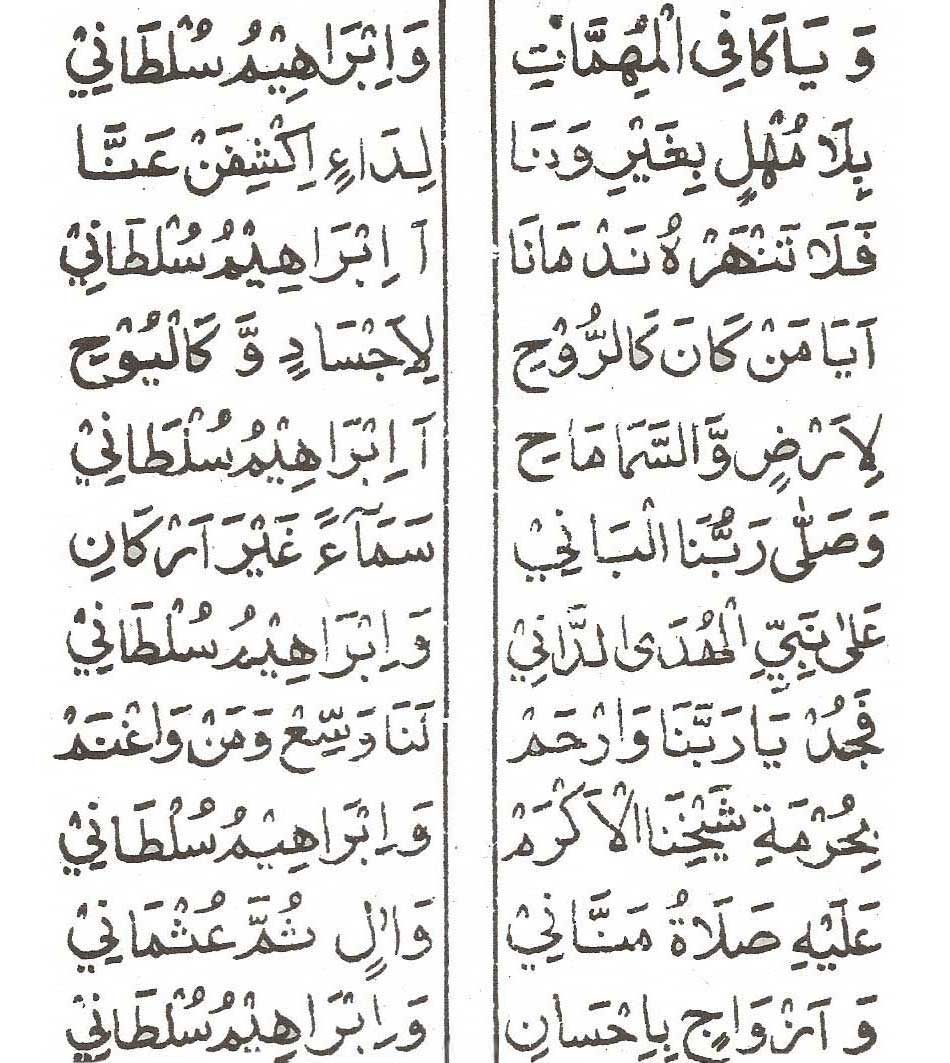 وَ يَا كَافِى الْمُهِمَّاتِ وَاِبْرَاهِيْمُ سُلْطَانِيْ
بِلَا مُهْلٍ بِغَيْرِ وَنَا لِدَاءٍ اِكْشِفَنْ عَنَّا
فَلَا تَنْهَرْهُ نَدْمَانَا آ اِبْرَاهِيْمُ سُلْطَانِيْ
اَيَا مَنْ كَانَ كَالرُّوْحِ لِاَجْسَادٍ وَّ كَالْيُوْحِ
لِاَرْضٍ وَّالسَّمَا مَاحِ آ اِبْرَاهِيْمُ سُلْطَانِيْ
وَصَلّٰى رَبُّنَا الْبَانِيْ سَمَآءً غَيْرَ اَرْكَانِ
عَلٰى نَبِيِّ الْهُدَى الدَّانِيْ وَاِبْرَاهِيْمُ سُلْطَانِيْ
فَجُدْ يَا رَبَّنَا وَارْحَمْ لَنَا وَسِّعْ وَمَنْ وَاغْنَمْ
بِحُرْمَةِ شَيْخِنَا الْاَكْرَمْ وَاِبْرَاهِيْمُ سُلْطَانِيْ
عَلَيْهِ صَلَاةُ مَنَّانِيْ وَاٰلٍ ثُمَّ عُثْمَانِيْ
وَ اَزْوَاجٍ بِاِحْسَانِ وَاِبْرَاهِيْمُ سُلْطَانِيْ